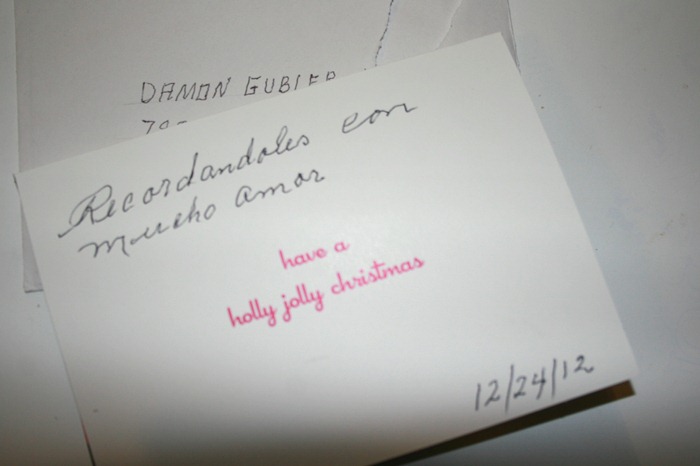 DAMON GUBLER
Recordandoles con
mucho amor
have a
holly jolly christmas
12/24/12